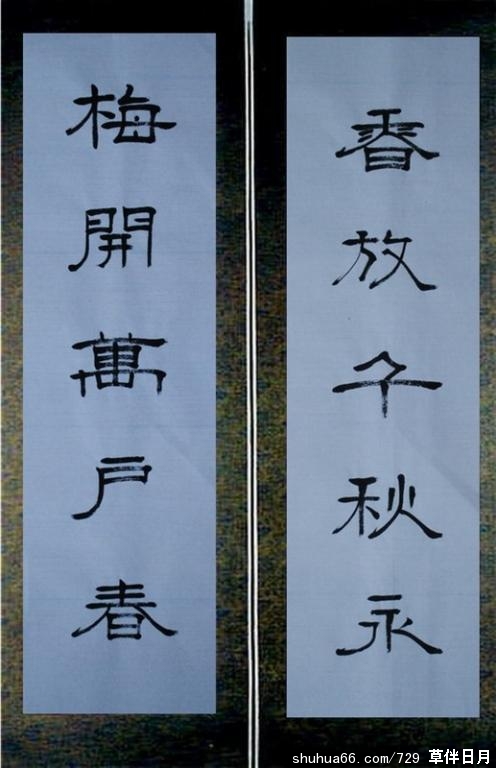 香放千秋永
梅開萬戶春
shuhua66.com/729 草伴日月